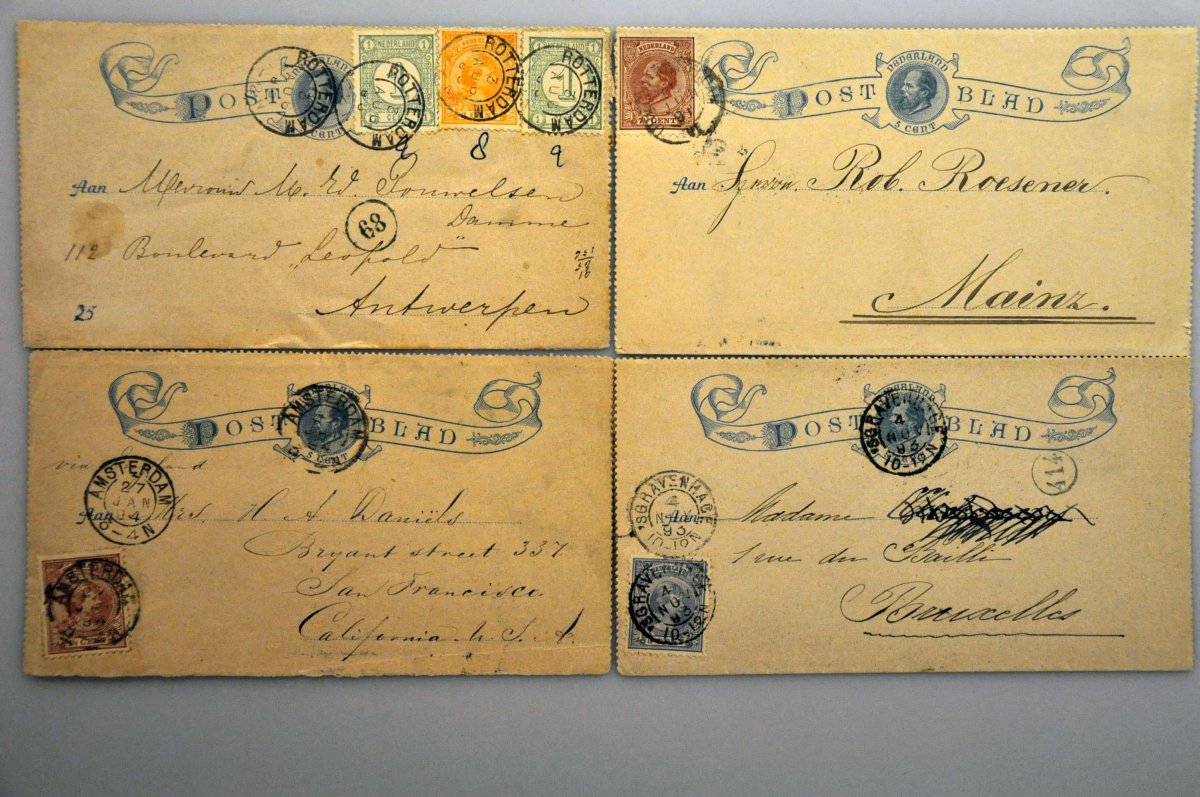 POST
5 CENT
NEDERLAND
1
1
1
1
ROTTERDAM
ROTTERDAM
ROTTERDAM
ROTTERDAM
8
9
Aan Mevrouw M. Ed. Pouwelsen
Damme
68
112 Boulevard „Leopold"
25
Antwerpen
NEDERLAND
CENT
NEDERLAND
POST BLAD
5 CENT
Aan Rob. Roesener.
Mainz.
POST BLAD
5 CENT
AMSTERDAM
via
AMSTERDAM
27
JAN
94
3-4N
Aan Mrs. H A Daniëls
Bryant street 337
San Francisco.
California U.S.A.
AMSTERDAM
NEDERLAND
POST BLAD
'SGRAVENHAGE
4
NOV
93
10-12N
414
'SGRAVENHAGE
4
NOV
93
10-12N
Aan Madame
1 rue du Bailli
Bruxelles
'SGRAVENHAGE
4
NOV
93
10-12N